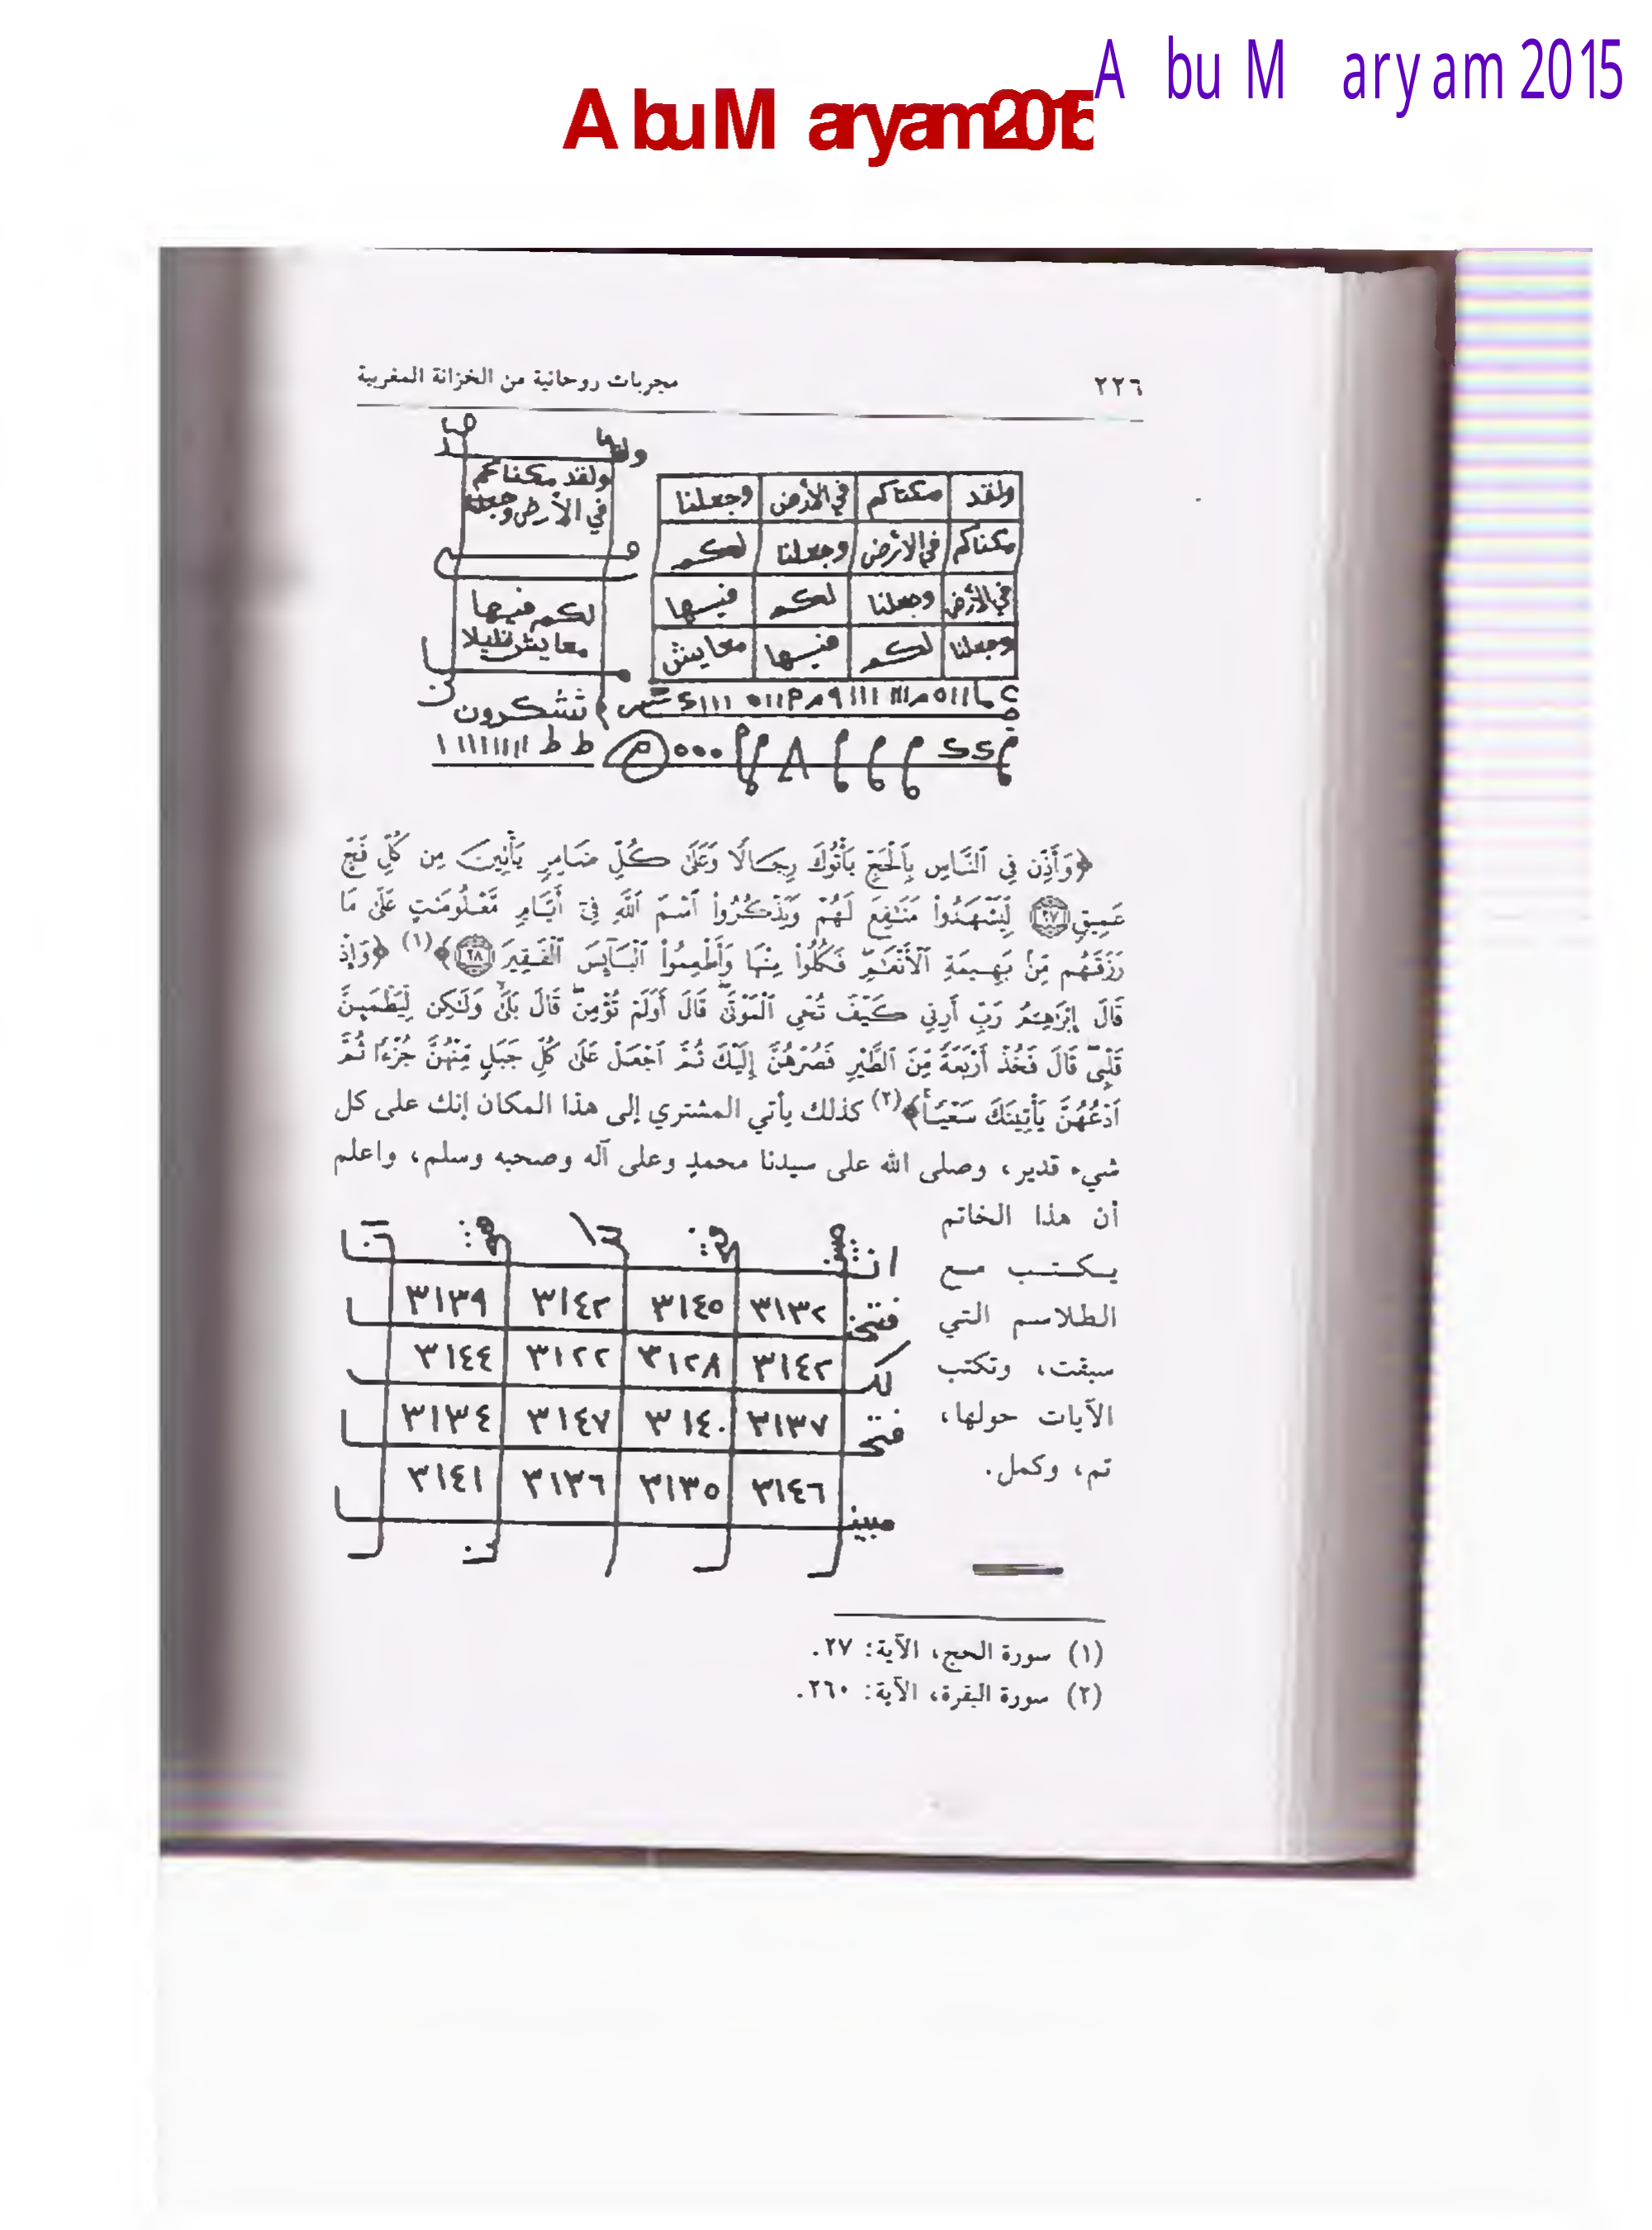 Abu Maryam 2015
Abu Maryam 2015
٢٢٦
مجربات روحانية من الخزانة المغربية
ولقد مكناكم في الأرض وجعلنا
مكناكم في الأرض وجعلنا لكم
في الأرض وجعلنا لكم فيها
وجعلنا لكم فيها معايش
ولقد مكناكم
في الأرض وجعلنا
لكم فيها
معايش قليلا
تشكرون
﴿وَأَذِّن فِي ٱلنَّاسِ بِٱلْحَجِّ يَأْتُوكَ رِجَالًا وَعَلَىٰ كُلِّ ضَامِرٍ يَأْتِينَ مِن كُلِّ فَجٍّ
عَمِيقٍ ٢٧ لِّيَشْهَدُوا۟ مَنَٰفِعَ لَهُمْ وَيَذْكُرُوا۟ ٱسْمَ ٱللَّهِ فِىٓ أَيَّامٍ مَّعْلُومَٰتٍ عَلَىٰ مَا
رَزَقَهُم مِّنۢ بَهِيمَةِ ٱلْأَنْعَٰمِ ۖ فَكُلُوا۟ مِنْهَا وَأَطْعِمُوا۟ ٱلْبَآئِسَ ٱلْفَقِيرَ ٢٨﴾(١) ﴿وَإِذْ
قَالَ إِبْرَٰهِۦمُ رَبِّ أَرِنِي كَيْفَ تُحْىِ ٱلْمَوْتَىٰ ۖ قَالَ أَوَلَمْ تُؤْمِن ۖ قَالَ بَلَىٰ وَلَٰكِن لِّيَطْمَئِنَّ
قَلْبِى ۖ قَالَ فَخُذْ أَرْبَعَةً مِّنَ ٱلطَّيْرِ فَصُرْهُنَّ إِلَيْكَ ثُمَّ ٱجْعَلْ عَلَىٰ كُلِّ جَبَلٍ مِّنْهُنَّ جُزْءًا ثُمَّ
ٱدْعُهُنَّ يَأْتِينَكَ سَعْيًا ۚ﴾(٢) كذلك يأتي المشتري إلى هذا المكان إنك على كل
شيء قدير، وصلى الله على سيدنا محمدٍ وعلى آله وصحبه وسلم، واعلم
أن هذا الخاتم
يكتب مع
الطلاسم التي
سبقت، وتكتب
الآيات حولها،
تم، وكمل.
فتحنا ٣١٣٢ ٣١٤٥ ٣١٤٢ ٣١٣٩
لك ٣١٤٢ ٣١٢٨ ٣١٢٢ ٣١٤٤
فتحا ٣١٣٧ ٣١٤٠ ٣١٤٧ ٣١٣٤
مبينا ٣١٤٦ ٣١٣٥ ٣١٣٦ ٣١٤١
(١) سورة الحج، الآية: ٢٧.
(٢) سورة البقرة، الآية: ٢٦٠.